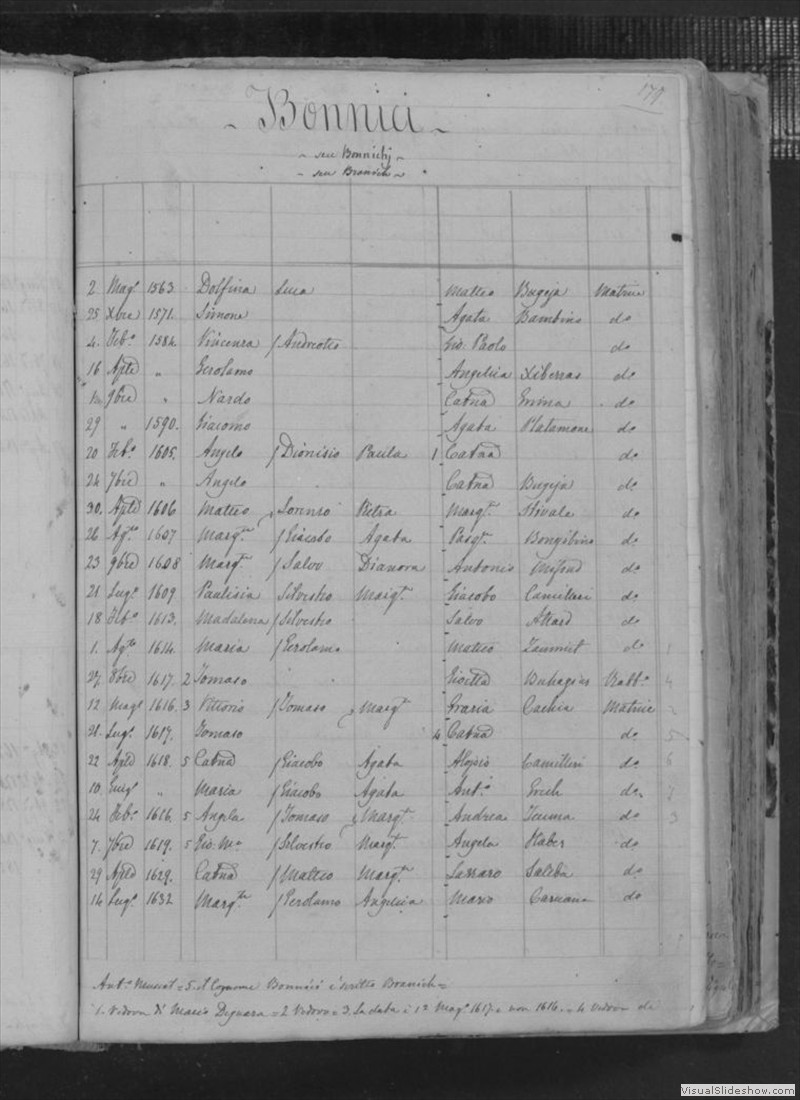 177
Bonnici
seu Bonnichj
seu Branich
2 Mago 1563 Dolfina Luca Matteo Bugeja Matrice
25 Xbre 1571. Simone Agata Bambino do
4. Febo 1584. Vincenza / Andreotta Gio. Paolo do
16 Aple " Gerolamo Angelica Xiberras do
9bre " Nardo Catna Emina do
29 " 1590. Giacomo Agata Platamone do
20 Febo 1605. Angelo / Dionisio Paula 1 Catna do
24 7bre " Angelo Catna Bugeja do
30. Aple 1606 Matteo Lorenzo Betta Margta Stivala do
26 Agto 1607 Margta / Giacobo Agata Bongibino do
23 9bre 1608 Margta / Salvo Dianora Antonio Mifsud do
21 Lugo 1609 Paulisia Silvestro Margta Giacobo Camilleri do
18 Febo 1613. Madalena / Silvestro Salvo Attard do
1. Agto 1614. Maria / Gerolamo Matteo Zammit do 1
27 8bre 1617. 2 Tomaso Buhagiar Rabto 4
12 Mago 1616. 3 Vittorio / Tomaso Margta Grazia Cachia Matrice 2
21. Lugo 1617. Tomaso 4 Catna do 5
22 Aple 1618. 5 Catna / Giacobo Agata Aloysio Camilleri do 6
10. " Maria / Giacobo Agata Anto Grech do 7
24 Febo 1616. 5 Angela / Tomaso Margta Andrea do 3
7. 7bre 1619. 5 Gio. Ma / Silvestro Margta Angela Haber do
29 Aple 1629. Catna / Matteo Margta Lazzaro Saliba do
14 Lugo 1632 Margta / Gerolamo Angelica Mario Caruana do
Anto Muscat = 5. Il Cognome Bonnici è scritto Branich =
1. Vedova di Mario Dignara = 2 Vedovo = 3. La data è 12 Mago 1617 e non 1616. = 4 Vedova de
VisualSlideshow.com